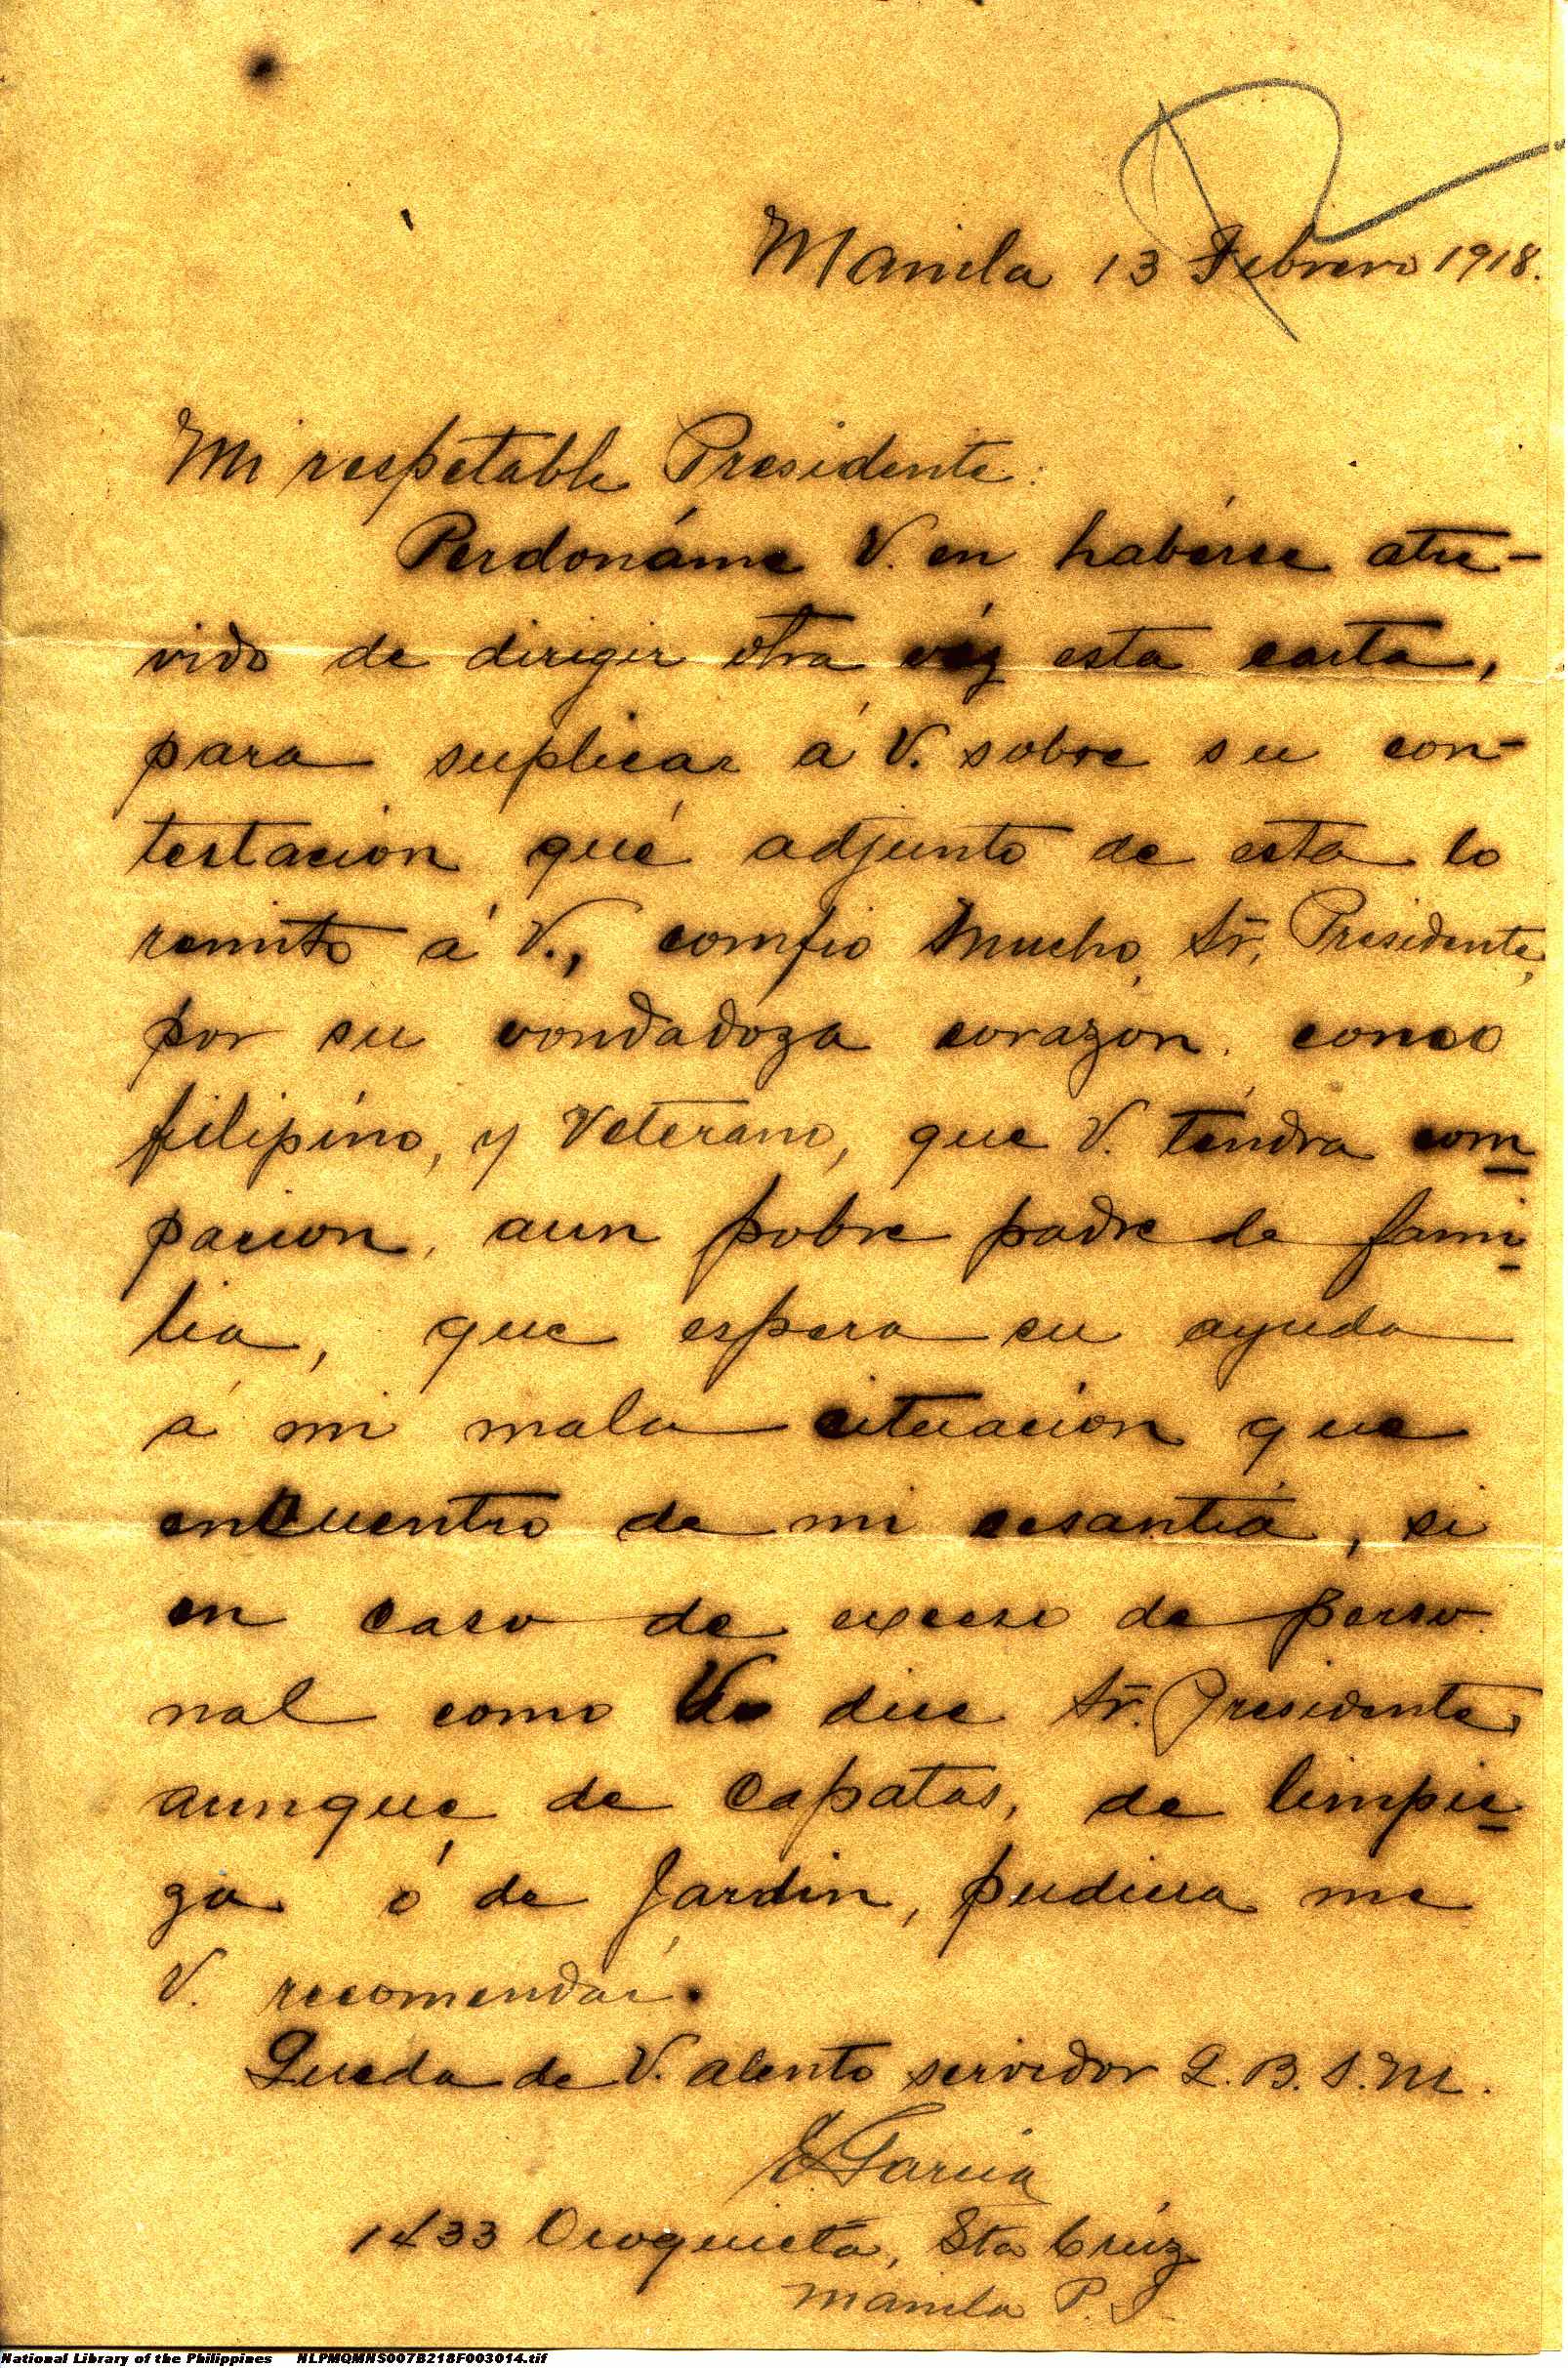 Manila 13 Febrero 1918.
Mi respetable Presidente:
Perdonáme V. en habérse atre-
vido de dirigir otra véz esta carta,
para suplicar á V. sobre su con-
testación qué adjunto de esta lo
remito á V., comfio mucho, Sr. Presidente,
por su vondadoza corazón, como
filipino, y Veterano, que V. téndra com-
pacion, aun pobre padre de fami-
lia, que espera su ayuda
á mi mala cituación que
encuentro de mi cesantiá, si
en caso de exceso de perso
nal como V. dice Sr. Presidente,
aunque de Capatas, de limpie-
za ó de Jardin, pudiera me
V. recomendar.
Queda de V. atento servidor Q. B. S. M.
E Garcia
1433 Oroquieta, Sta Crúz
Manila P. I.
National Library of the Philippines NLPMQMNS007B218F003014.tif